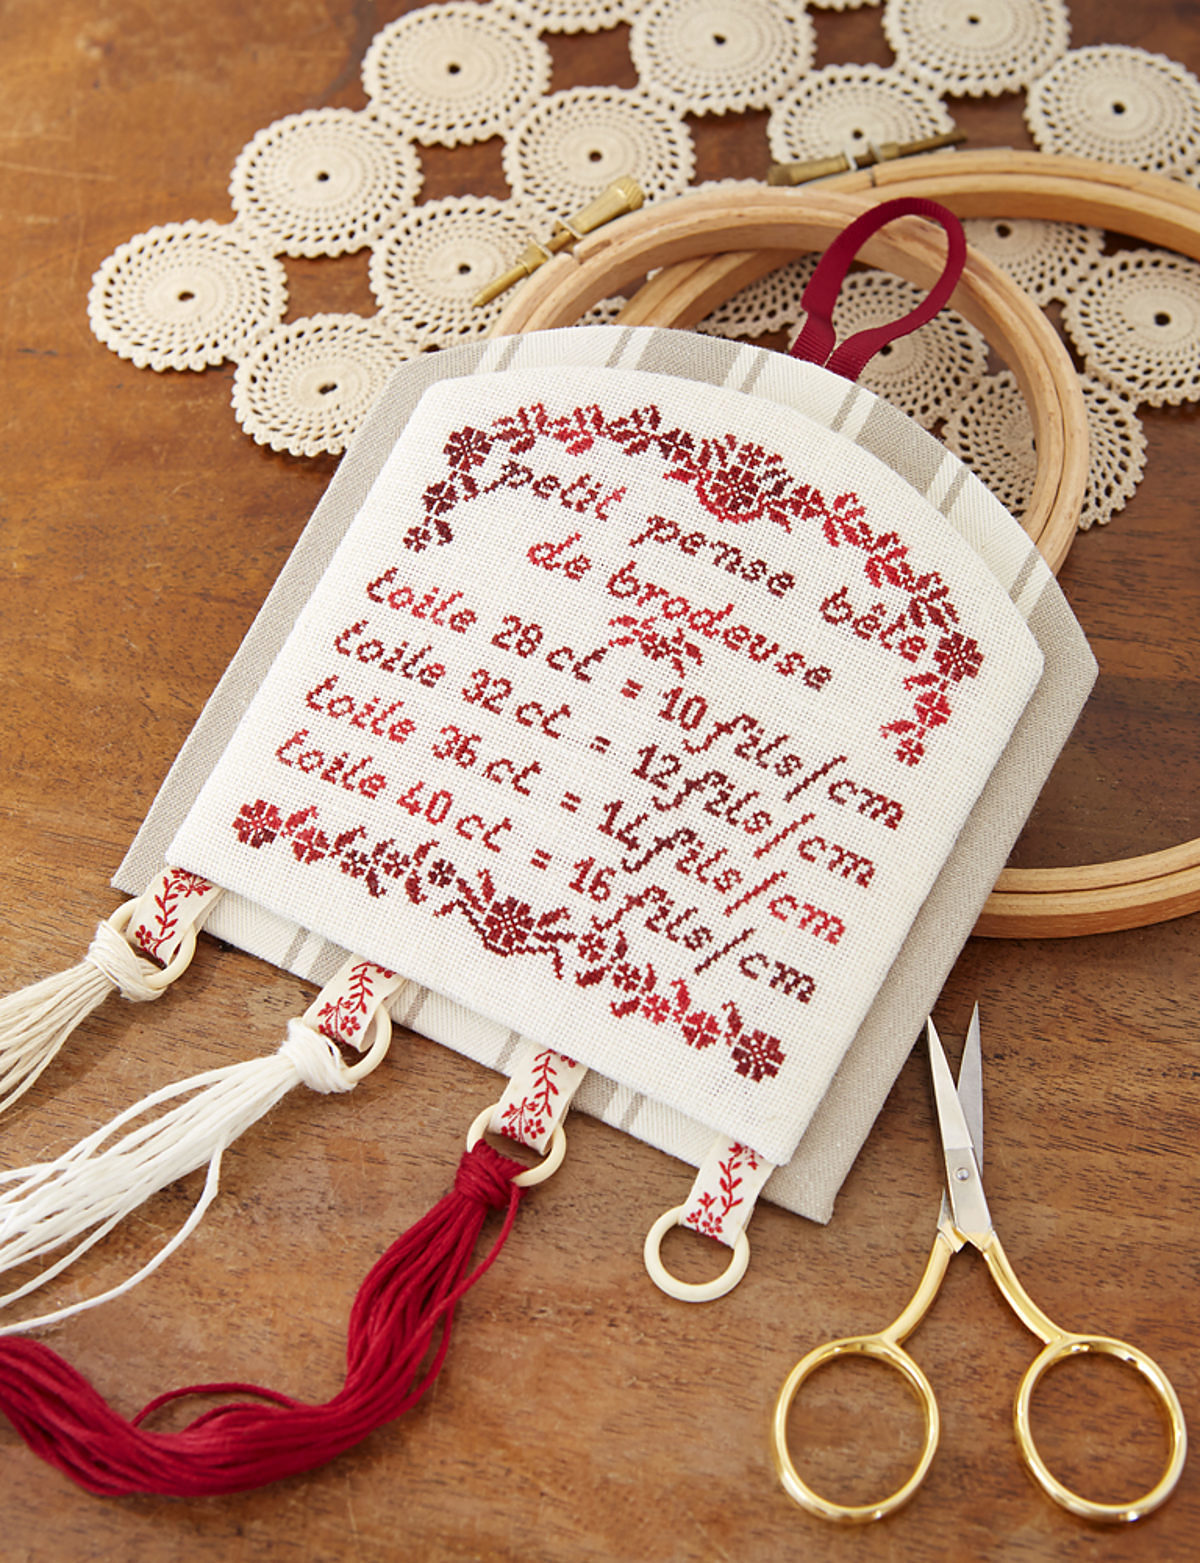 petit pense bête
de brodeuse
toile 28 ct = 10 fils/cm
toile 32 ct = 12 fils/cm
toile 36 ct = 14 fils/cm
toile 40 ct = 16 fils/cm